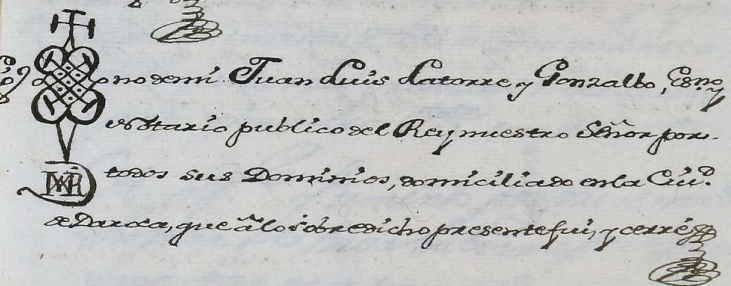 Sig no de mi Juan Luis Latorre y Gonzalbo, Esno. y
Notario publico del Rey nuestro Señor por
todos sus Dominios, domiciliado en la Ciud.
de Daroca, que â lo sobredicho presente fui, y cerré